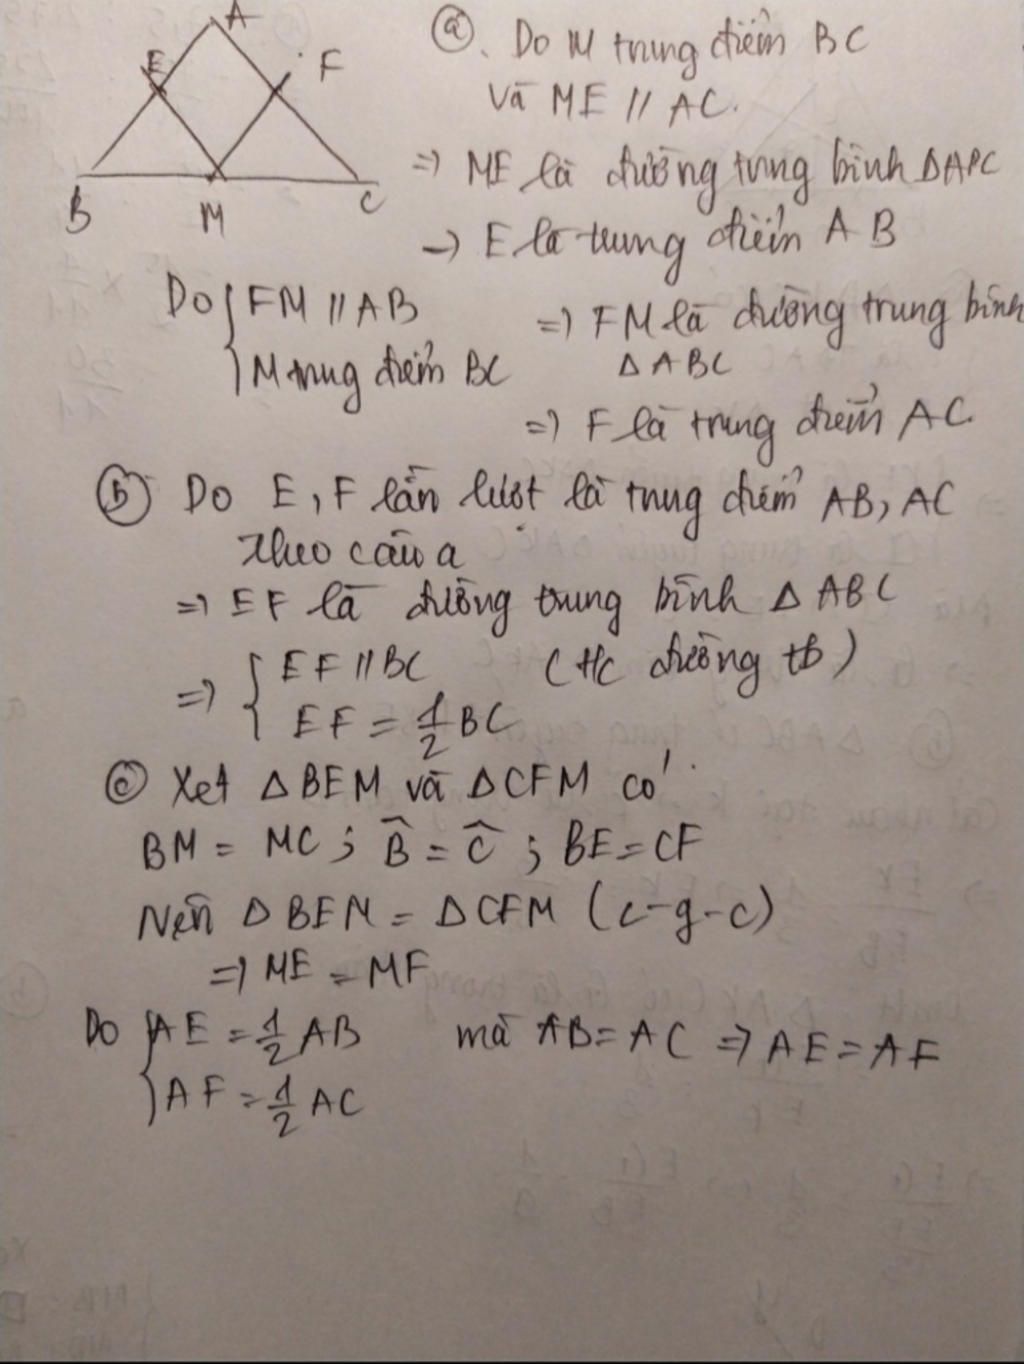 A
E
F
B
M
C
ⓐ. Do M trung điểm BC
Và ME // AC.
=> ME là đường trung bình ΔABC
-> E là trung điểm AB
Do { FM // AB
M trug điểm BC
=> FM là đường trung bình
Δ ABC
=> F là trung điểm AC
ⓑ Do E, F lần lượt là trung điểm AB, AC
theo câu a
=> EF là đường trung bình Δ ABC
=> { EF // BC (t/c đường tb)
EF = 1/2 BC
ⓒ Xét Δ BEM và Δ CFM có
BM = MC ; B̂ = Ĉ ; BE = CF
Nên Δ BEM = Δ CFM (c-g-c)
=> ME = MF
Do { AE = 1/2 AB mà AB = AC => AE = AF
AF = 1/2 AC